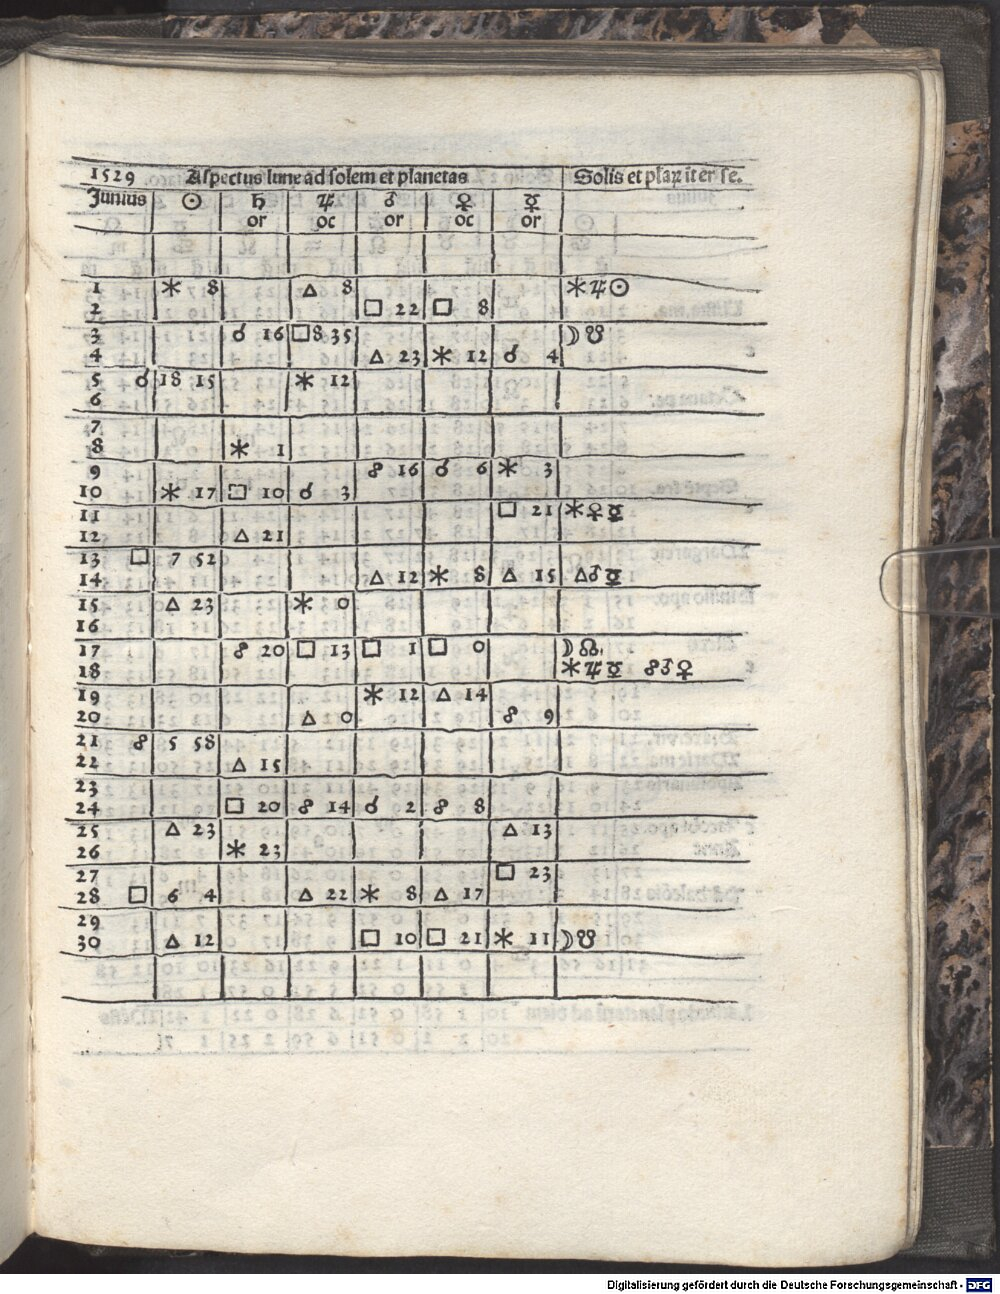 1529 Aspectus lune ad solem et planetas Solis et plaꝝ iter se.
Junius ☉ ♄ ♃ ♂ ♀ ☿
or oc or oc or
1 ⚹ 8 △ 8 ⚹♃☉
2 □ 22 □ 8
3 ☌ 16 □ 8.35 ☽☋
4 △ 23 ⚹ 12 ☌ 4
5 ☌ 18 15 ⚹ 12
6
7
8 ⚹ 1
9 ☍ 16 ☌ 6 ⚹ 3
10 ⚹ 17 □ 10 ☌ 3
11 □ 21 ⚹♀☿
12 △ 21
13 □ 7 52
14 △ 12 ⚹ 8 △ 15 △♂☿
15 △ 23 ⚹ 0
16
17 ☍ 20 □ 13 □ 1 □ 0 ☽☊
18 ⚹♃☿ ☍♂♀
19 ⚹ 12 △ 14
20 △ 0 ☍ 9
21 ☍ 5 58
22 △ 15
23
24 □ 20 ☍ 14 ☌ 2 ☍ 8
25 △ 23 △ 13
26 ⚹ 23
27 □ 23
28 □ 6 4 △ 22 ⚹ 8 △ 17
29
30 △ 12 □ 10 □ 21 ⚹ 11 ☽☋
Digitalisierung gefördert durch die Deutsche Forschungsgemeinschaft - DFG